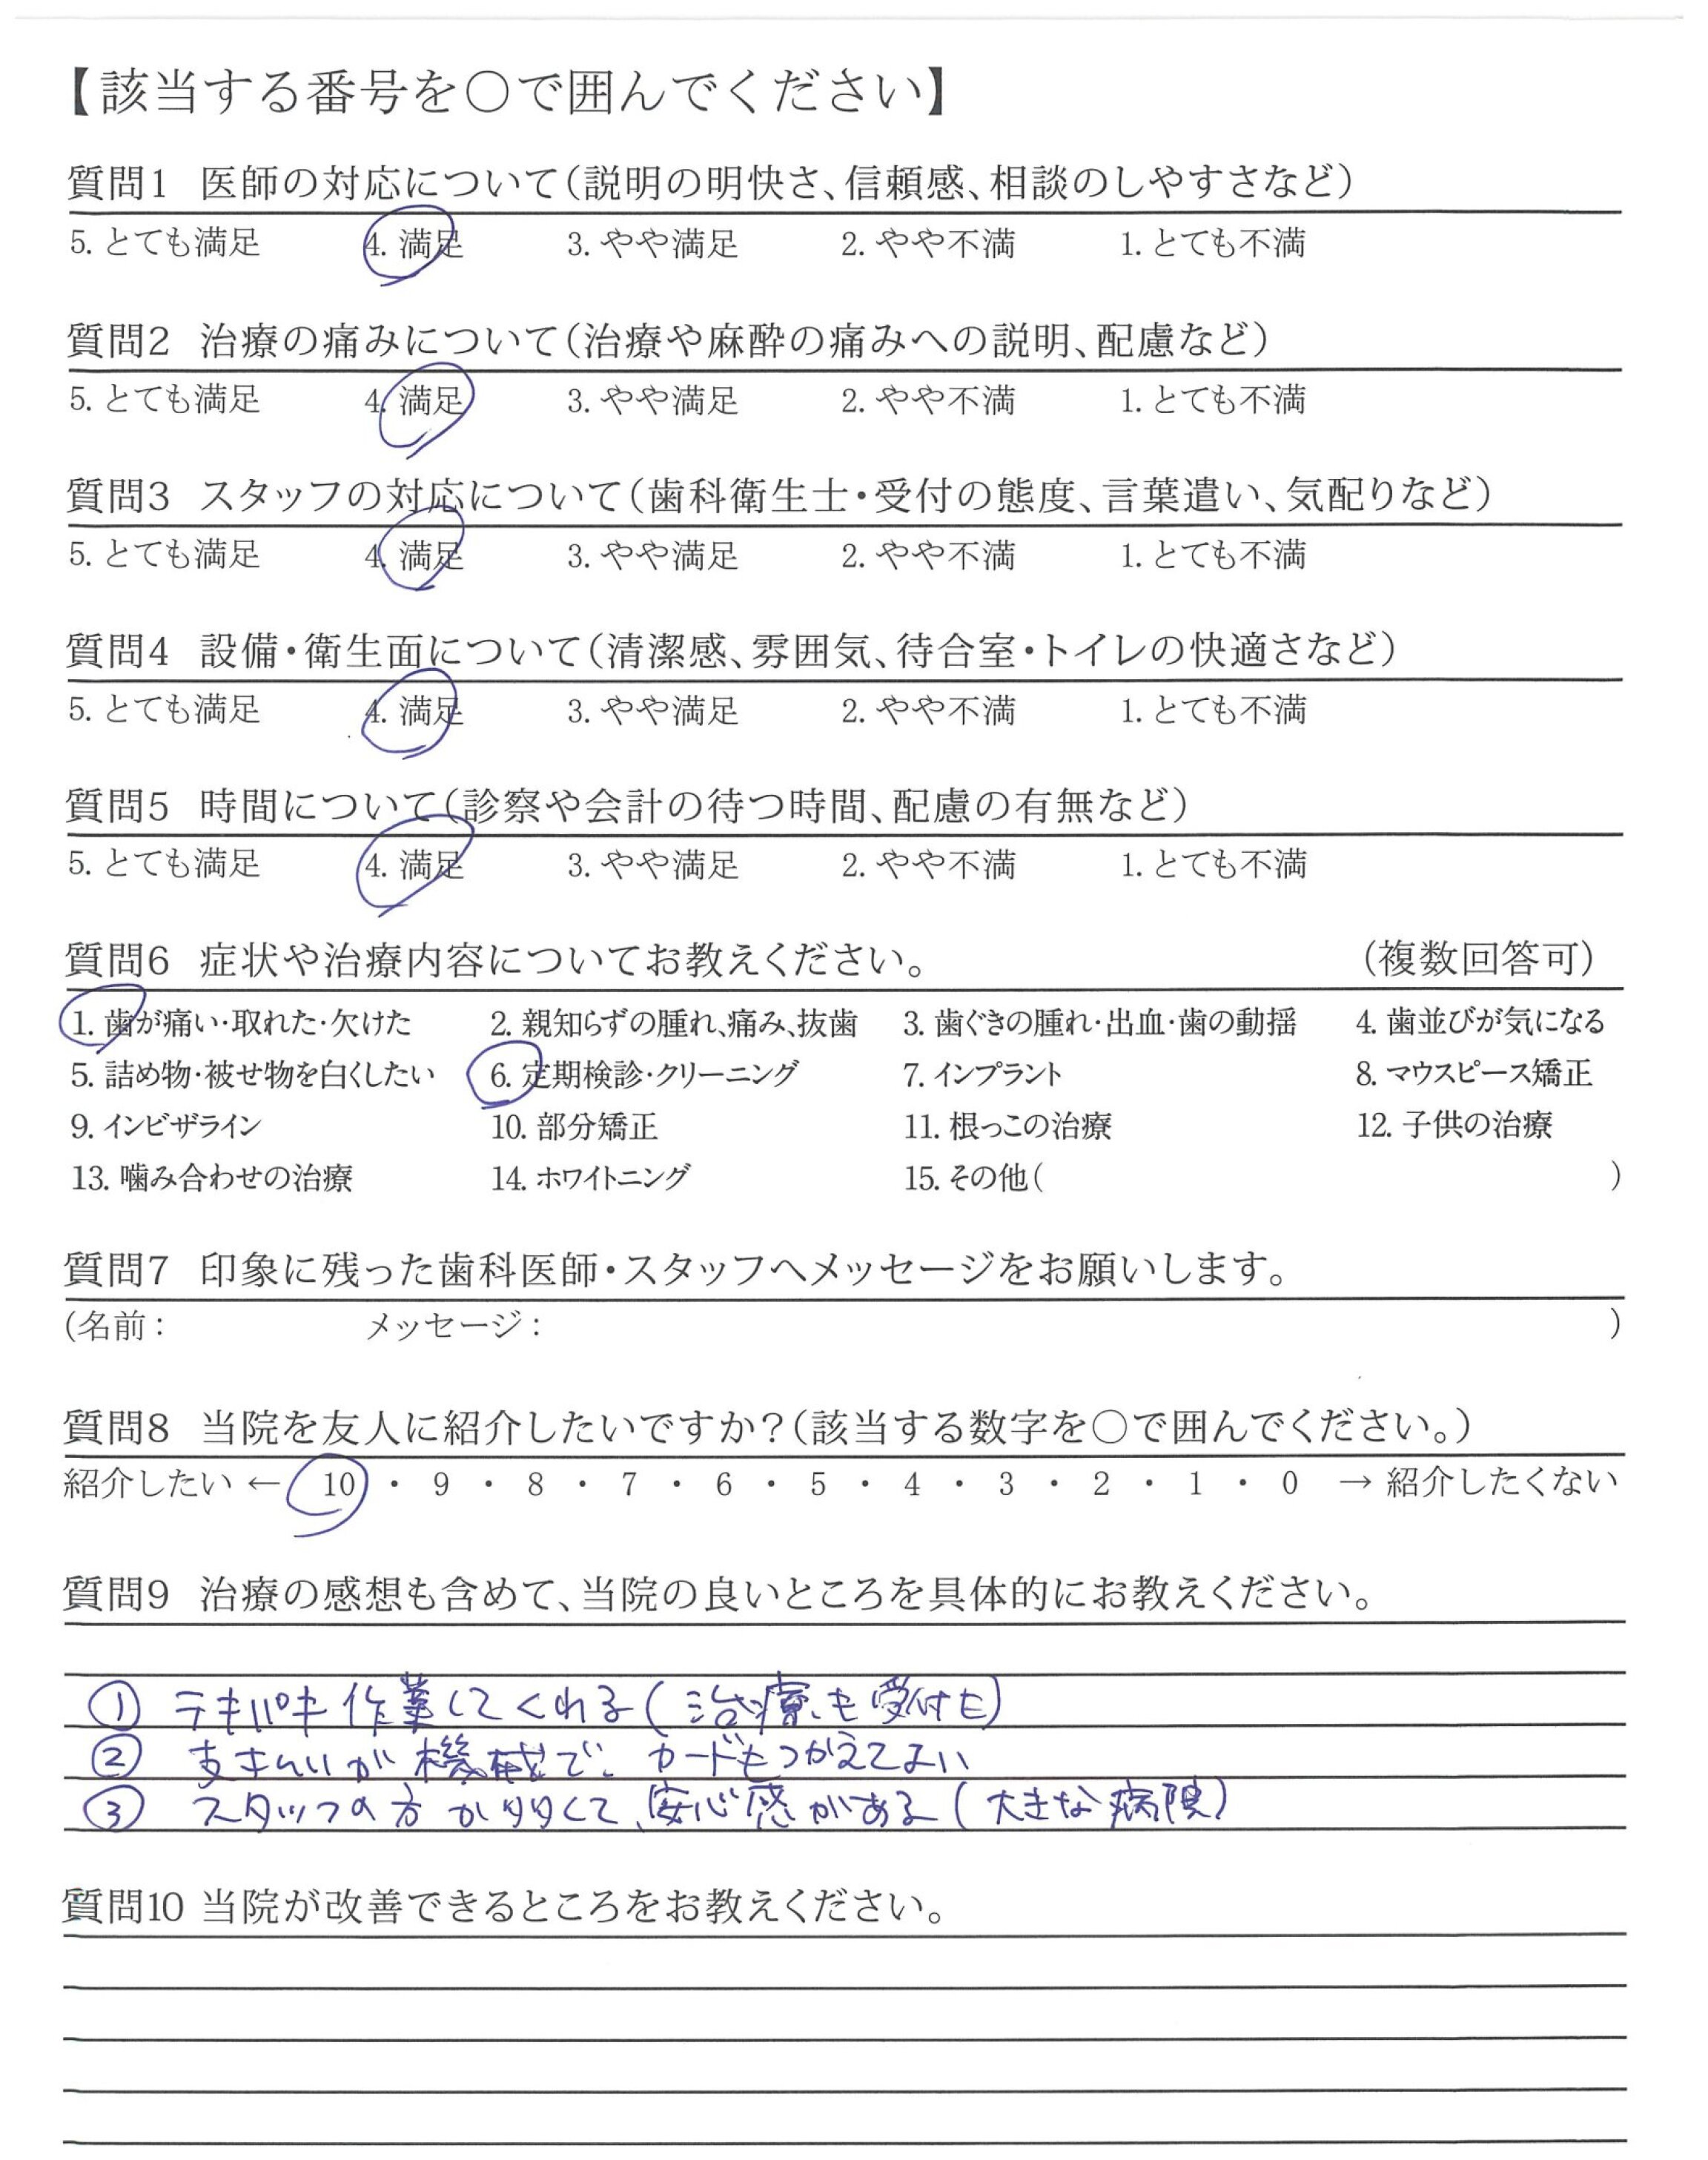 【該当する番号を〇で囲んでください】
質問1 医師の対応について(説明の明快さ、信頼感、相談のしやすさなど)
5. とても満足 4. 満足 3. やや満足 2. やや不満 1. とても不満
質問2 治療の痛みについて(治療や麻酔の痛みへの説明、配慮など)
5. とても満足 4. 満足 3. やや満足 2. やや不満 1. とても不満
質問3 スタッフの対応について(歯科衛生士・受付の態度、言葉遣い、気配りなど)
5. とても満足 4. 満足 3. やや満足 2. やや不満 1. とても不満
質問4 設備・衛生面について(清潔感、雰囲気、待合室・トイレの快適さなど)
5. とても満足 4. 満足 3. やや満足 2. やや不満 1. とても不満
質問5 時間について(診察や会計の待つ時間、配慮の有無など)
5. とても満足 4. 満足 3. やや満足 2. やや不満 1. とても不満
質問6 症状や治療内容についてお教えください。 (複数回答可)
1. 歯が痛い・取れた・欠けた 2. 親知らずの腫れ、痛み、抜歯 3. 歯ぐきの腫れ・出血・歯の動揺 4. 歯並びが気になる
5. 詰め物・被せ物を白くしたい 6. 定期検診・クリーニング 7. インプラント 8. マウスピース矯正
9. インビザライン 10. 部分矯正 11. 根っこの治療 12. 子供の治療
13. 噛み合わせの治療 14. ホワイトニング 15. その他( )
質問7 印象に残った歯科医師・スタッフへメッセージをお願いします。
(名前： メッセージ： )
質問8 当院を友人に紹介したいですか?(該当する数字を〇で囲んでください。)
紹介したい ← 10 ・ 9 ・ 8 ・ 7 ・ 6 ・ 5 ・ 4 ・ 3 ・ 2 ・ 1 ・ 0 → 紹介したくない
質問9 治療の感想も含めて、当院の良いところを具体的にお教えください。
① テキパキ作業してくれる(治療も受付も)
② 支はらいが機械で、カードもつかえてよい
③ スタッフの方が多くて、安心感がある(大きな病院)
質問10 当院が改善できるところをお教えください。